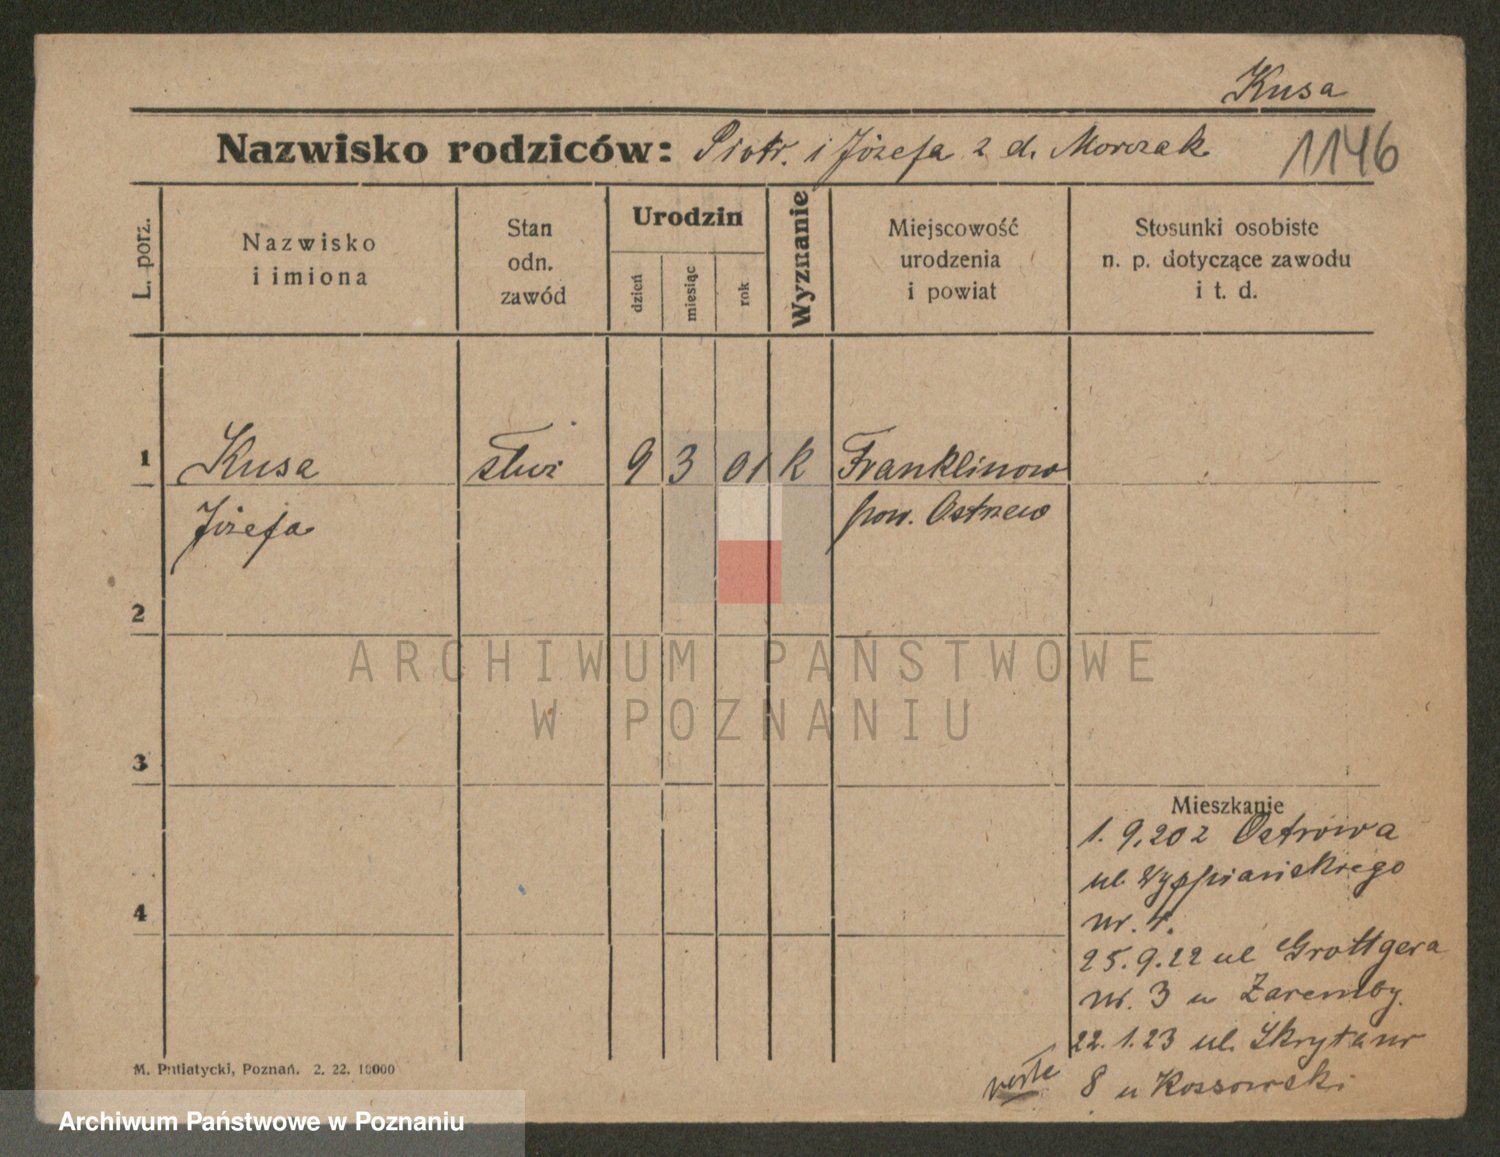 Kusa
Nazwisko rodziców: Piotr. i Józefa z d. Morczak
1146
L. porz.
Nazwisko
i imiona
Stan
odn.
zawód
Urodzin
dzień
miesiąc
rok
Wyznanie
Miejscowość
urodzenia
i powiat
Stosunki osobiste
n. p. dotyczące zawodu
i t. d.
1 Kusa służ 9 3 01 k Franklinow
Józefa pow. Ostrzew
2
ARCHIWUM PAŃSTWOWE
W POZNANIU
3
Mieszkanie
1. 9.20 z Ostrowa
ul. Wyspiańskiego
4
nr. 4.
25.9.22 ul Grottgera
nr. 3 u Zaremby.
22.1.23 ul. Skryta nr
verte 8 u Kossowski
M. Putiatycki, Poznań. 2. 22. 10000
Archiwum Państwowe w Poznaniu